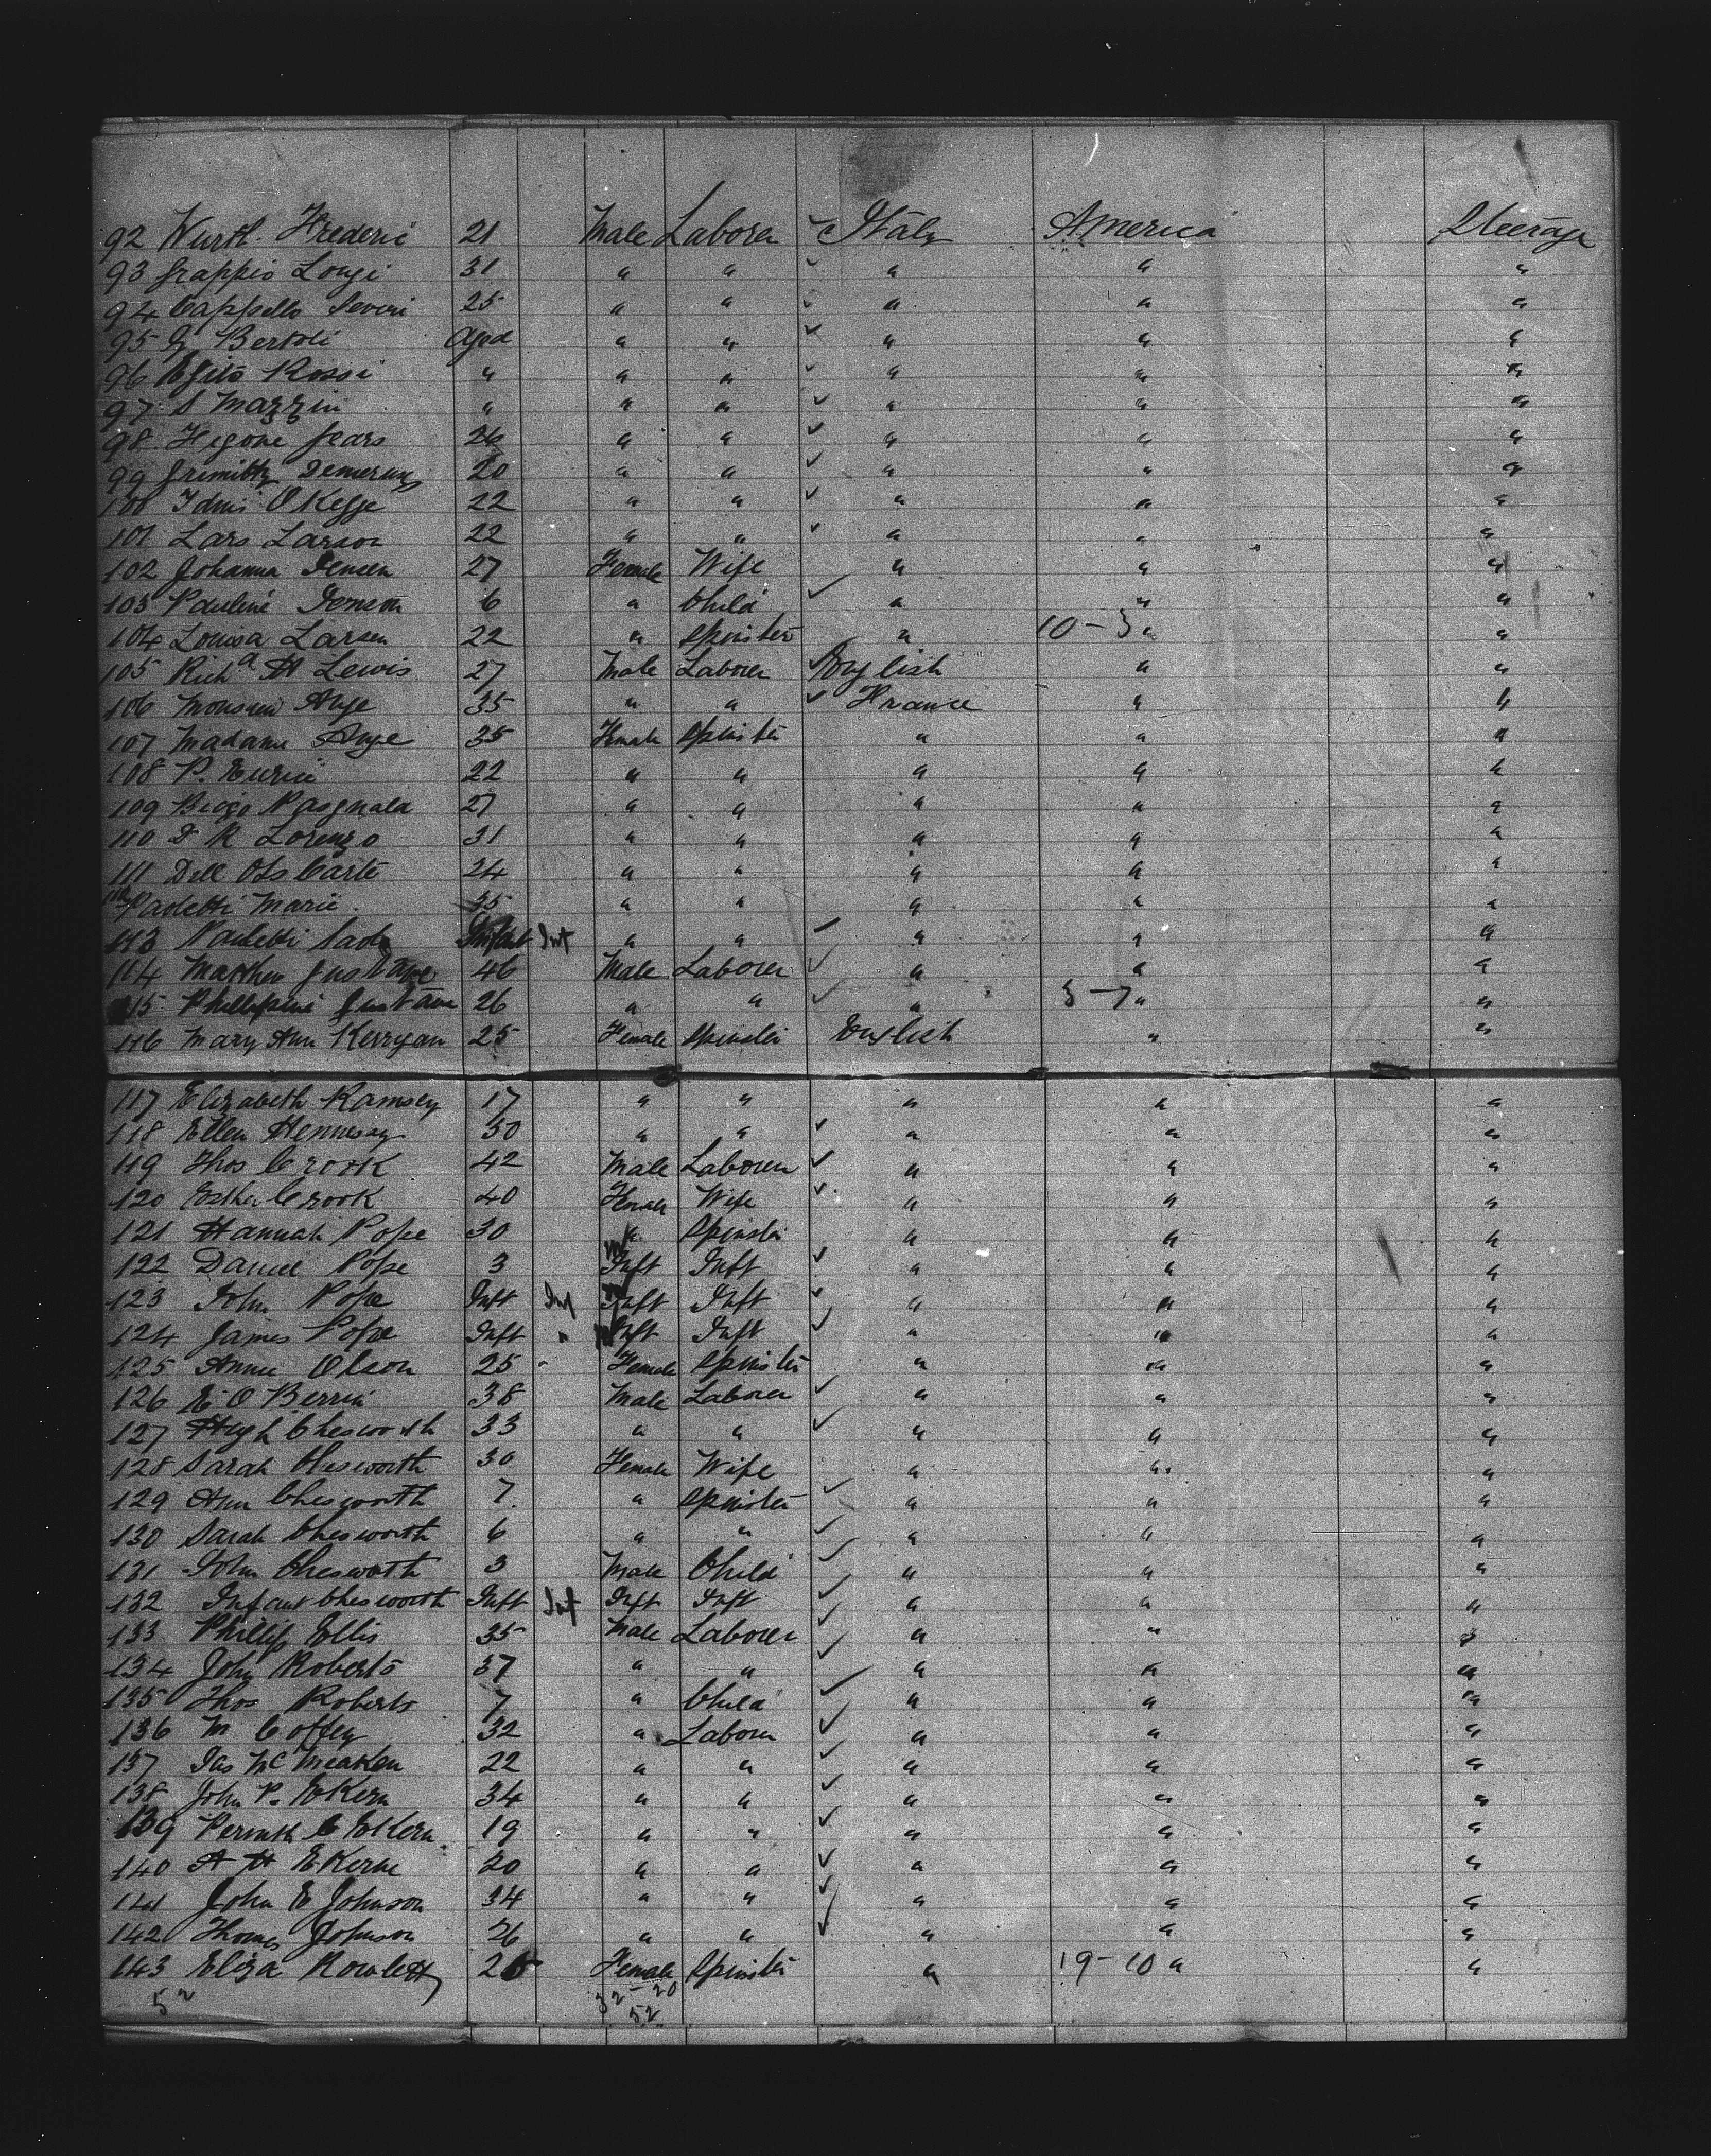 92 Wurtl. Frederic 21 Male Laborer ✓ Italy America Steerage
93 Grappio Longi 31 " " ✓ " " "
94 Cappello Severi 25 " " ✓ " " "
95 G Bertoli Aged " " ✓ " " "
96 Egits Rossi " " " ✓ " " "
97 S Mazzini " " " ✓ " " "
98 Hegone Jears 26 " " ✓ " " "
99 20 " " ✓ " " "
100 22 " " ✓ " " "
101 Lars Larson 22 " " ✓ " " "
102 Johanna Jensen 27 Female Wife " " "
103 Pauline Jenson 6 " Child ✓ " " "
104 Louisa Larsen 22 " Spinster " 10-3 " "
105 Richd H Lewis 27 Male Laborer ✓ English " "
106 Monsieu Ange 35 " " ✓ France " "
107 Madame Ange 35 Female Spinster " " "
108 P. 22 " " " " "
109 Pasgnala 27 " " " " "
110 D R Lorenzo 31 " " " " "
111 Dell Ols Carte 24 " " " " "
112 Paoletti Marie. 35 " " " " "
113 Paoletti Infant Inf " " ✓ " " "
114 Matthew Gustave 46 Male Laborer ✓ " " "
115 Phillipini Gustave 26 " " ✓ " 3-7 " "
116 Mary Ann Kerrygan 25 Female Spinster English " "
117 Elizabeth Ramsey 17 " " " " "
118 Ellen Hennesay 50 " " ✓ " " "
119 Thos Crook 42 Male Laborer ✓ " " "
120 Esther Crook 40 Female Wife ✓ " " "
121 Hannah Pope 30 " Spinster " " "
122 Daniel Pope 3 m Inft Inft ✓ " " "
123 John Pope Inft Inf m Inft Inft ✓ " " "
124 James Pope Inft " m Inft Inft ✓ " " "
125 Annie Olson 25 Female Spinster " " "
126 E O Berrin 38 Male Laborer ✓ " " "
127 Hugh Chesworth 33 " " ✓ " " "
128 Sarah Chesworth 30 Female Wife " " "
129 Ann Chesworth 7. " Spinster ✓ " " "
130 Sarah Chesworth 6 " " ✓ " " "
131 John Chesworth 3 Male Child ✓ " " "
132 Infant Chesworth Inft Inf Inft Inft ✓ " " "
133 Phillip Ellis 35 Male Laborer ✓ " " "
134 John Roberts 37 " " ✓ " " "
135 Thos Roberts 7 " Child ✓ " " "
136 M Coffey 32 " Laborer ✓ " " "
137 Jas McMeaken 22 " " ✓ " " "
138 John P. Ekern 34 " " ✓ " " "
139 C Ekern 19 " " ✓ " " "
140 A H Ekerne 20 " " ✓ " " "
141 John E Johnson 34 " " ✓ " " "
142 Thomas Johnson 26 " " ✓ " " "
143 Eliza Rowlett 25 Female Spinster " 19-10 " "
52 32-20
52